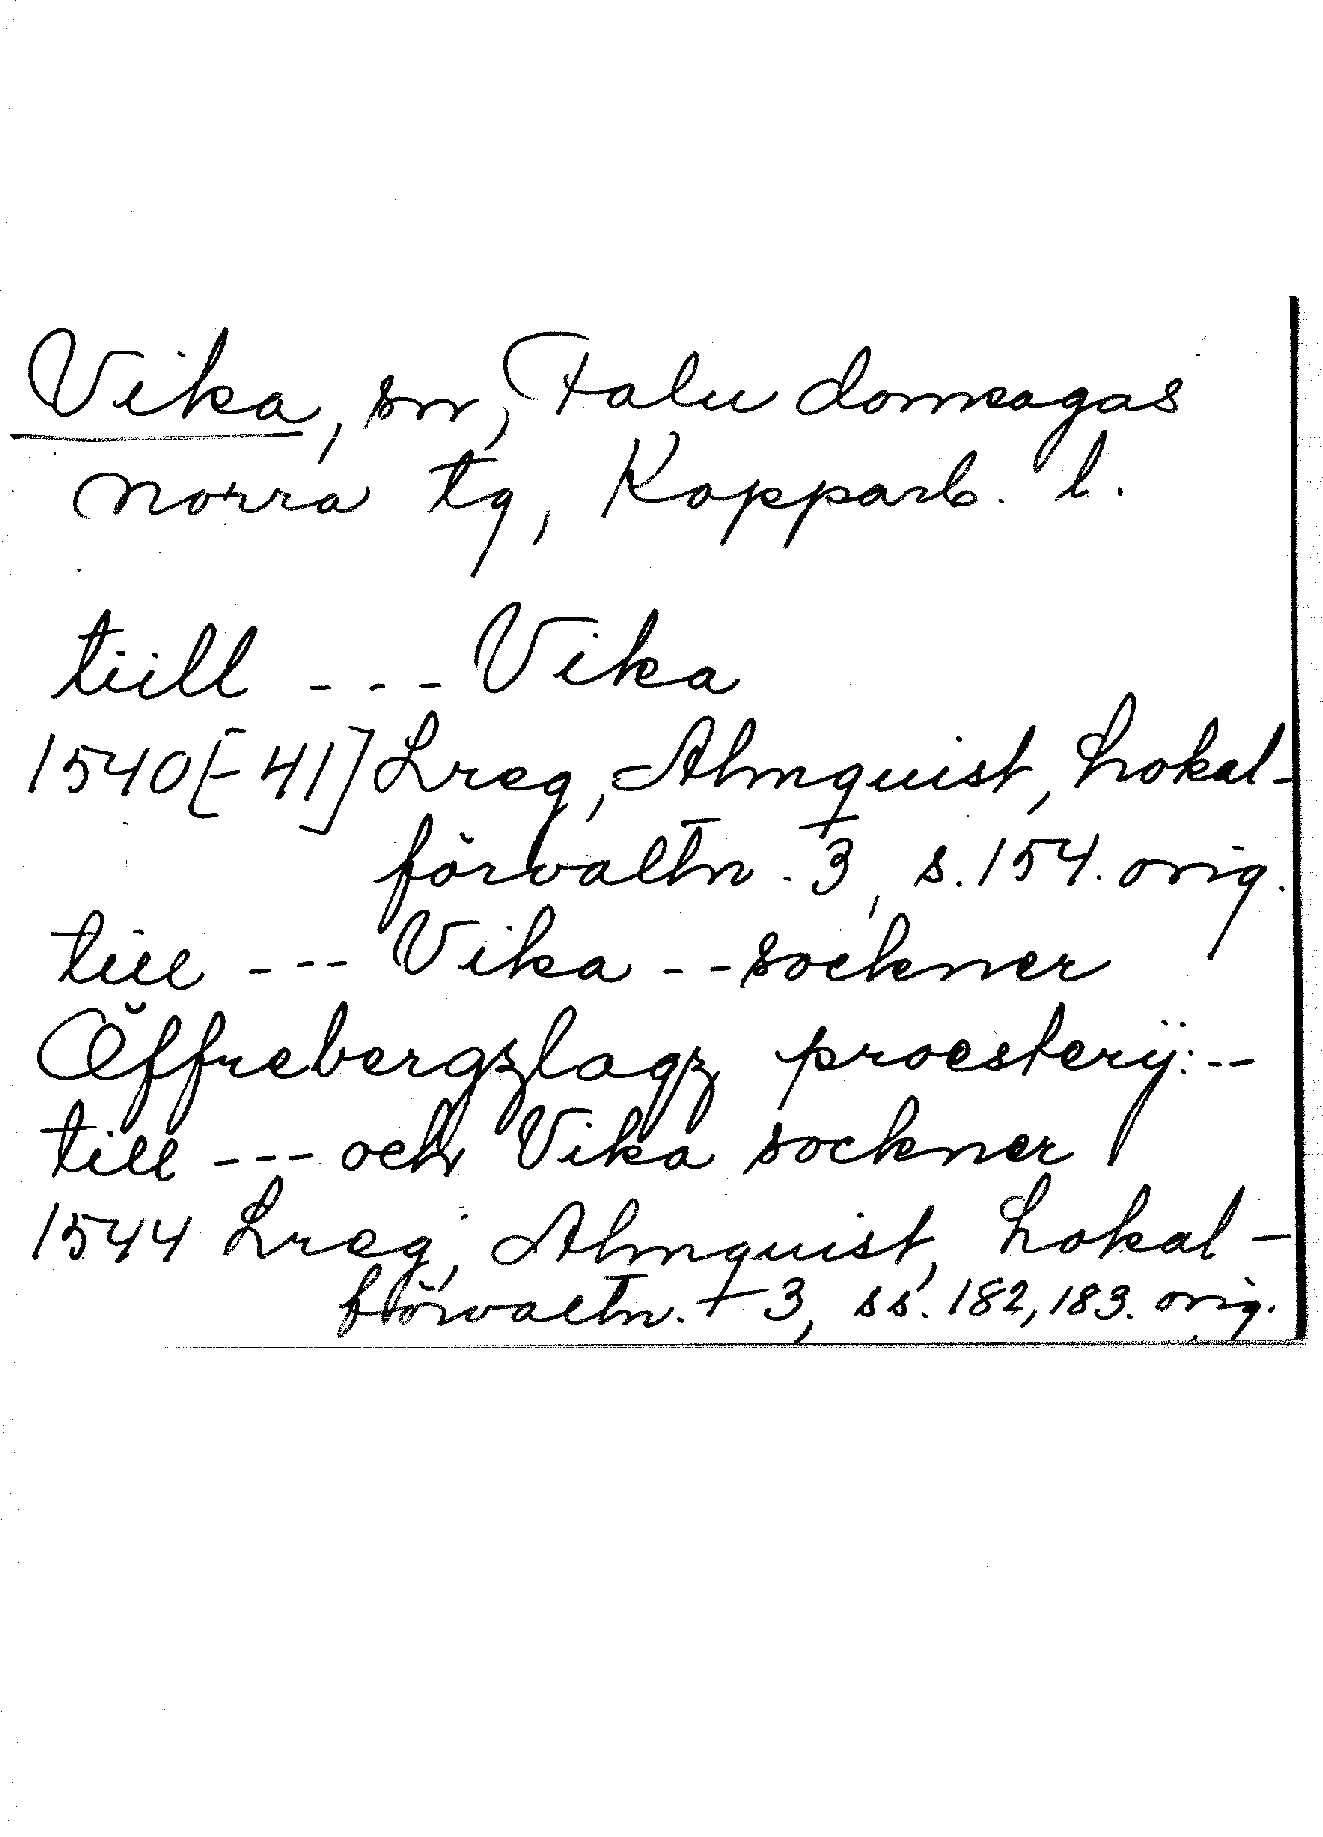 Vika, sn, Falu domsagas
norra tg, Kopparb. l.
tiill --- Vika
1540[-41] Lreg, Almquist, Lokal-
förvaltn. 3, s. 154. orig.
till --- Vika -- sockner
Öffrebergzlagz proesterÿ: --
till --- och Vika sockner
1544 Lreg, Almquist, Lokal-
förvaltn. + 3, ss. 182, 183. orig.